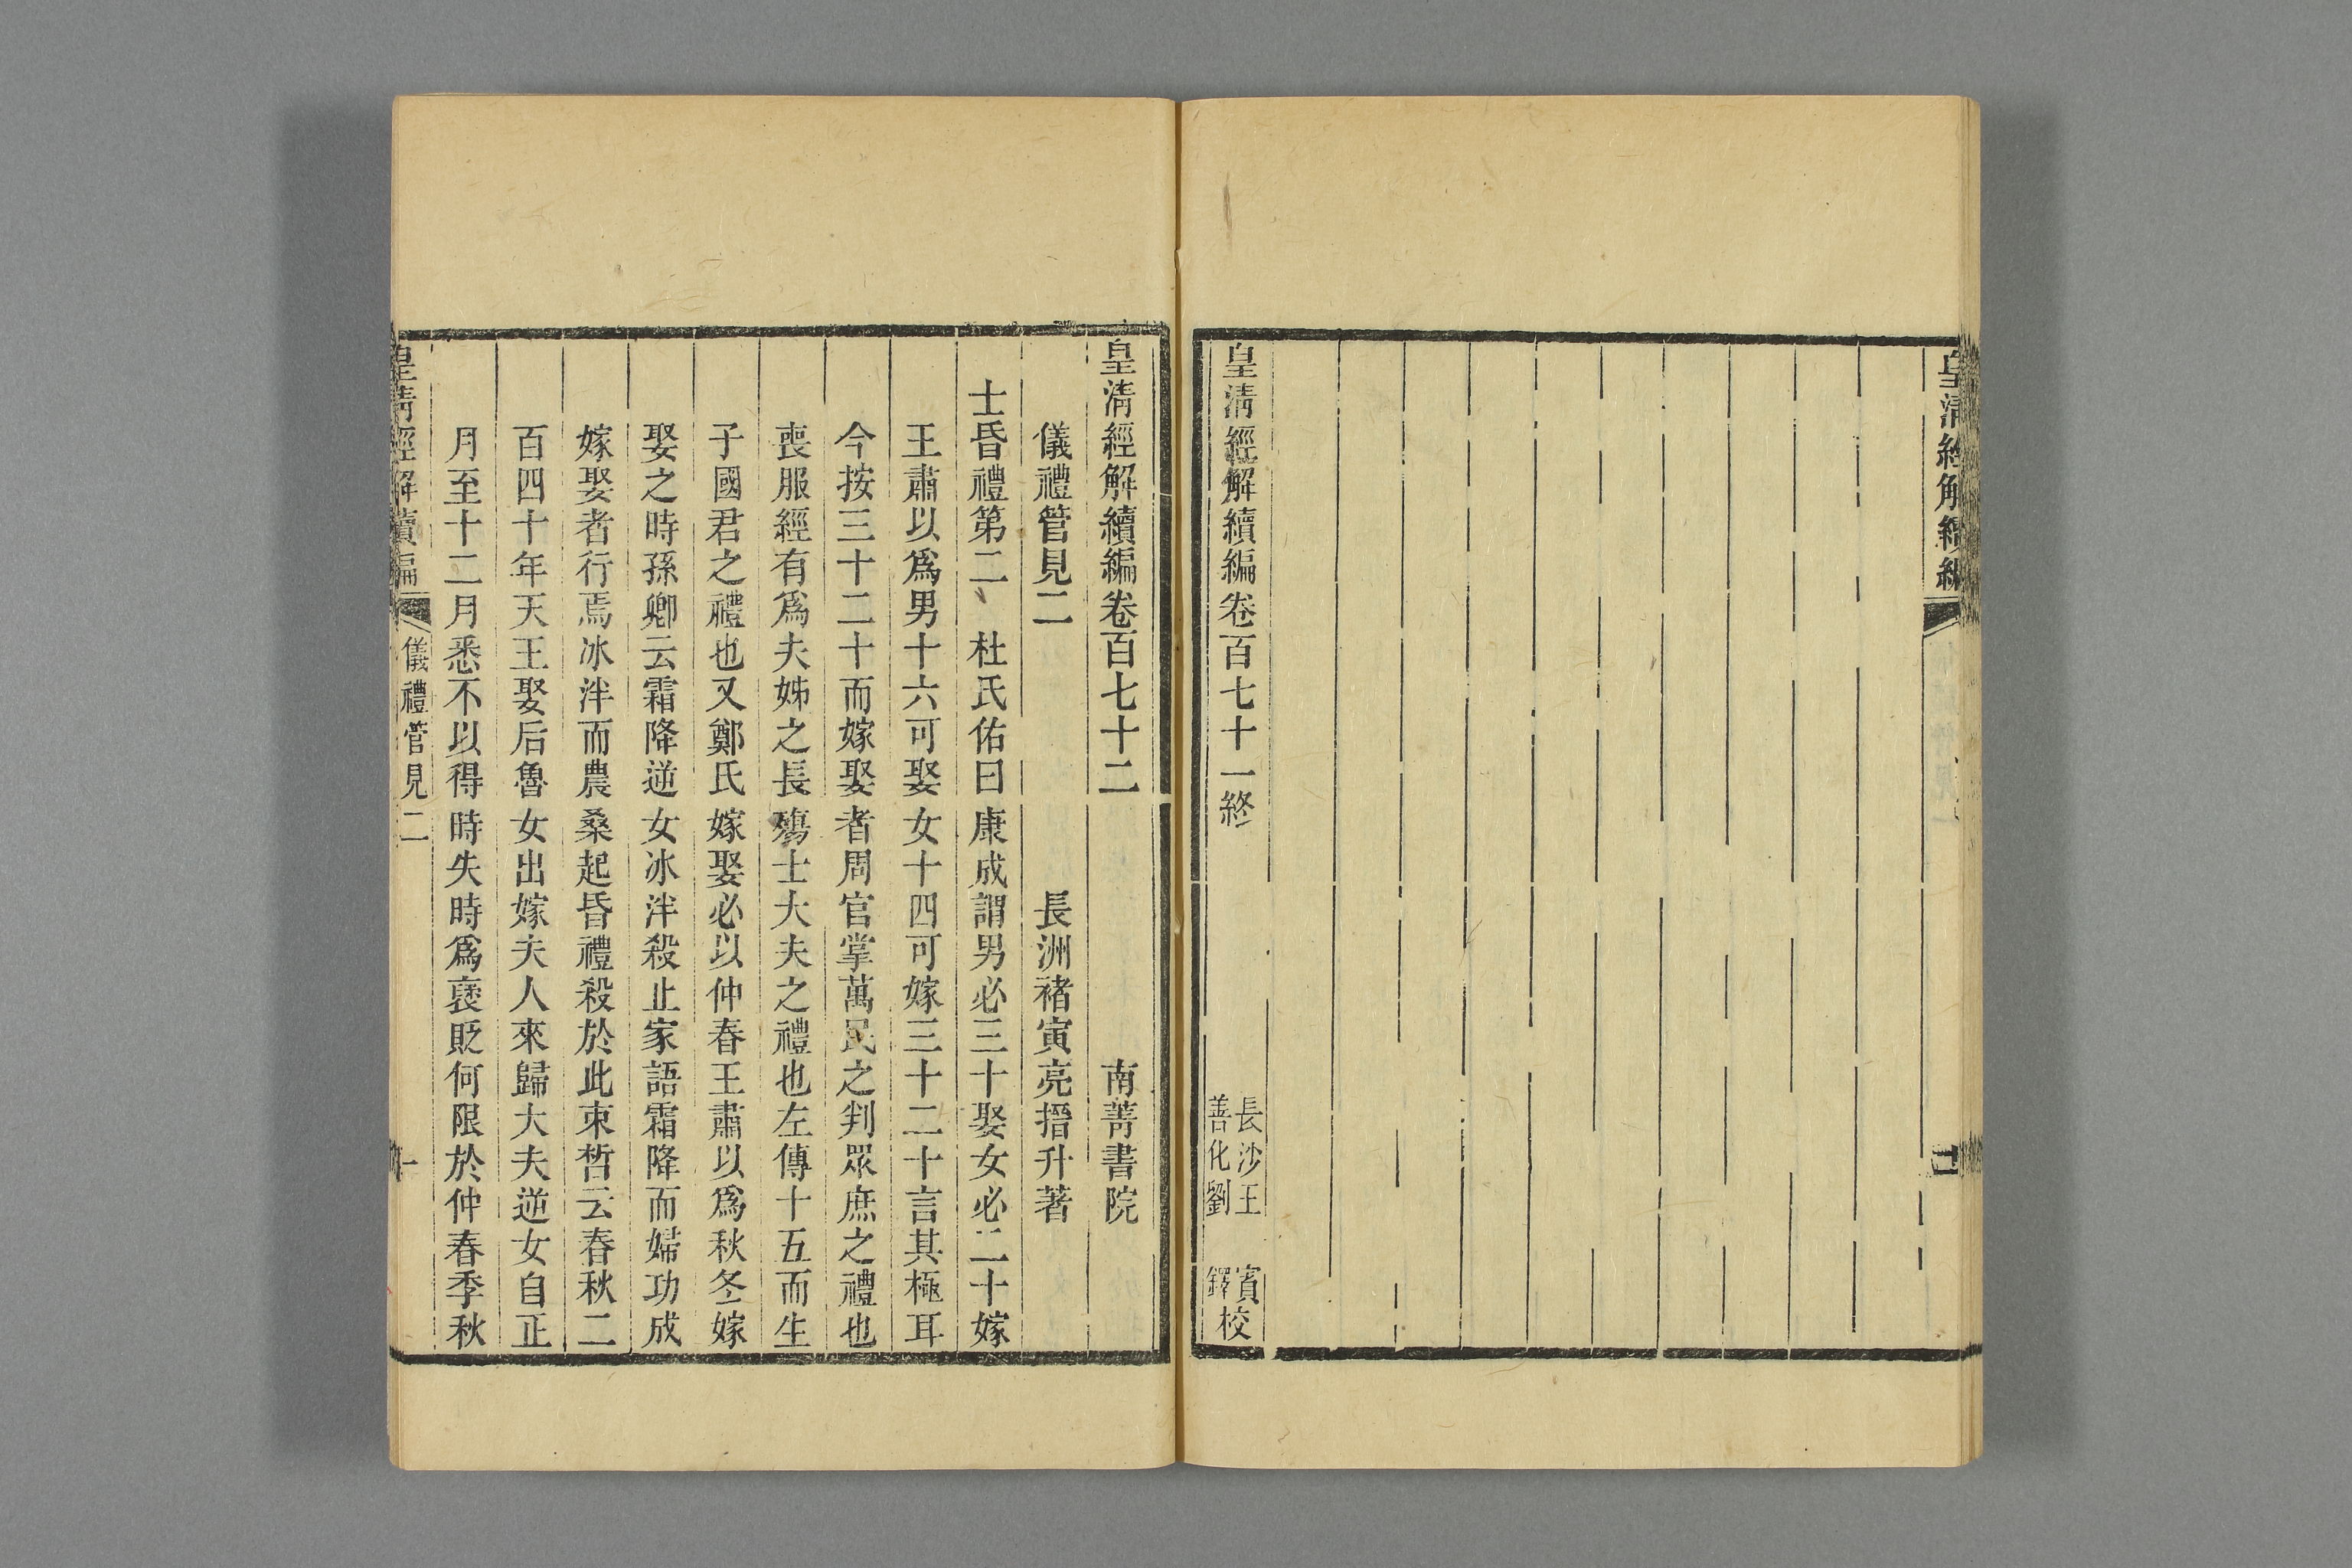 皇清經解續編
皇清經解續編卷百七十一終
長沙王 賓
善化劉 鐸
校
皇清經解續編卷百七十二 南菁書院
儀禮管見二 長洲褚寅亮搢升著
士昏禮第二 杜氏佑曰康成謂男必三十娶女必二十嫁
王肅以爲男十六可娶女十四可嫁三十二十言其極耳
今按三十二十而嫁娶者周官掌萬民之判眾庶之禮也
喪服經有爲夫姊之長殤士大夫之禮也左傳十五而生
子國君之禮也又鄭氏嫁娶必以仲春王肅以爲秋冬嫁
娶之時孫卿云霜降逆女冰泮殺止家語霜降而婦功成
嫁娶者行焉冰泮而農桑起昏禮殺於此束晳云春秋二
百四十年天王娶后魯女出嫁夫人來歸大夫逆女自正
月至十二月悉不以得時失時爲襃貶何限於仲春季秋
皇清經解續編 儀禮管見二 一